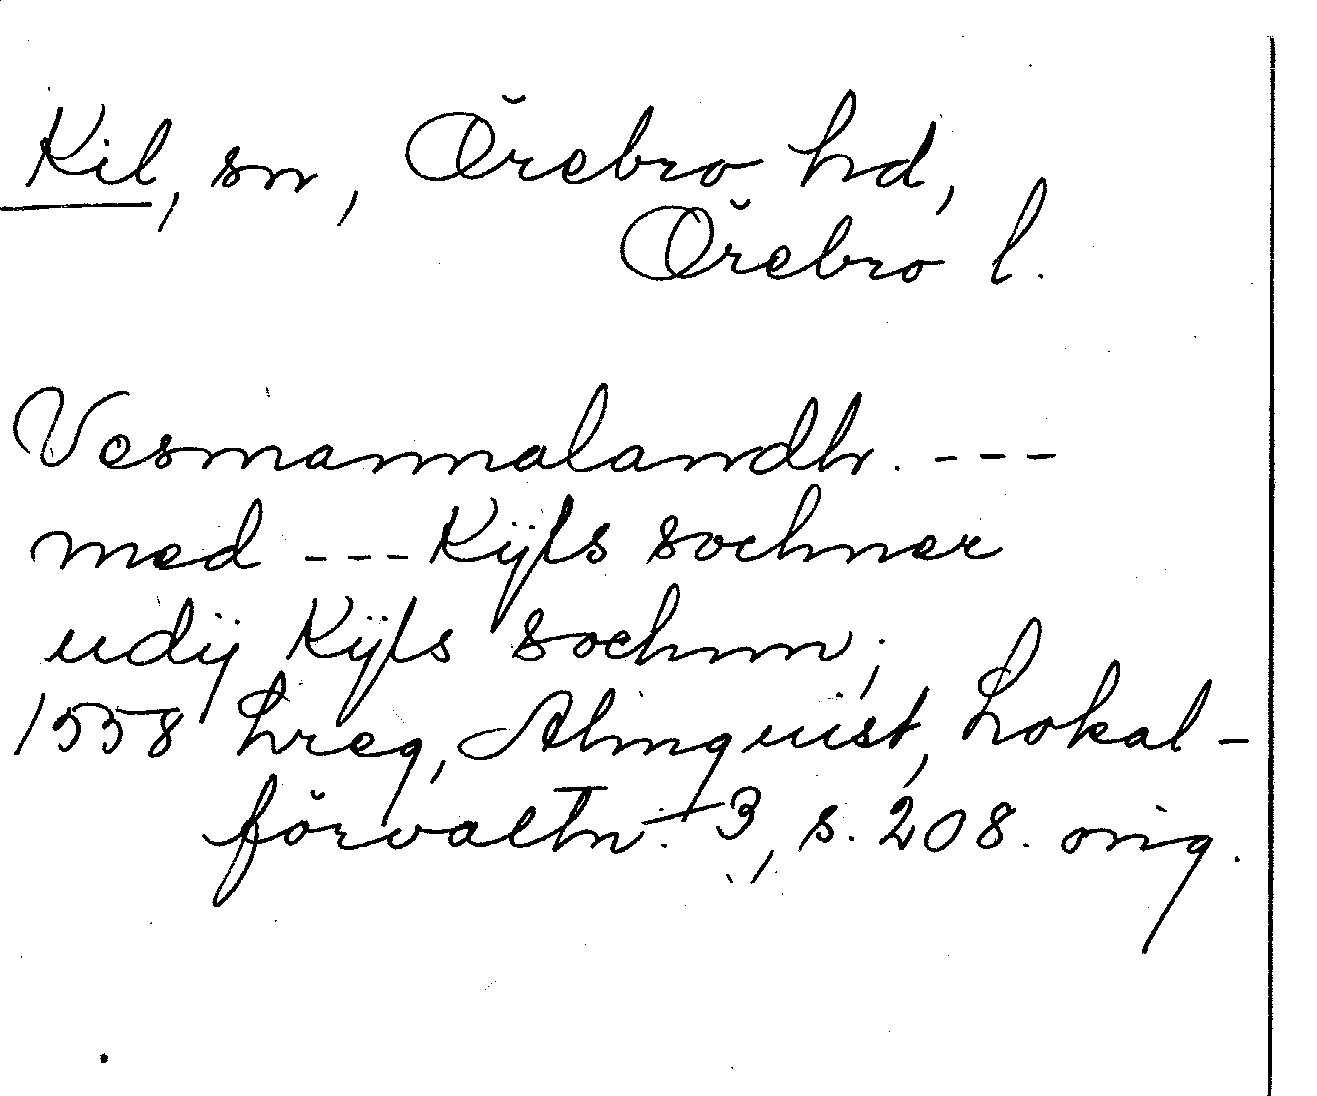 Kil, sn, Örebro hd,
Örebro l.
Vesmannalandh. ---
med --- Kÿls sochner
udij Kÿls sochnn;
1558 hreg, Almquist, Lokal-
förvaltn. 3, s. 208. orig.